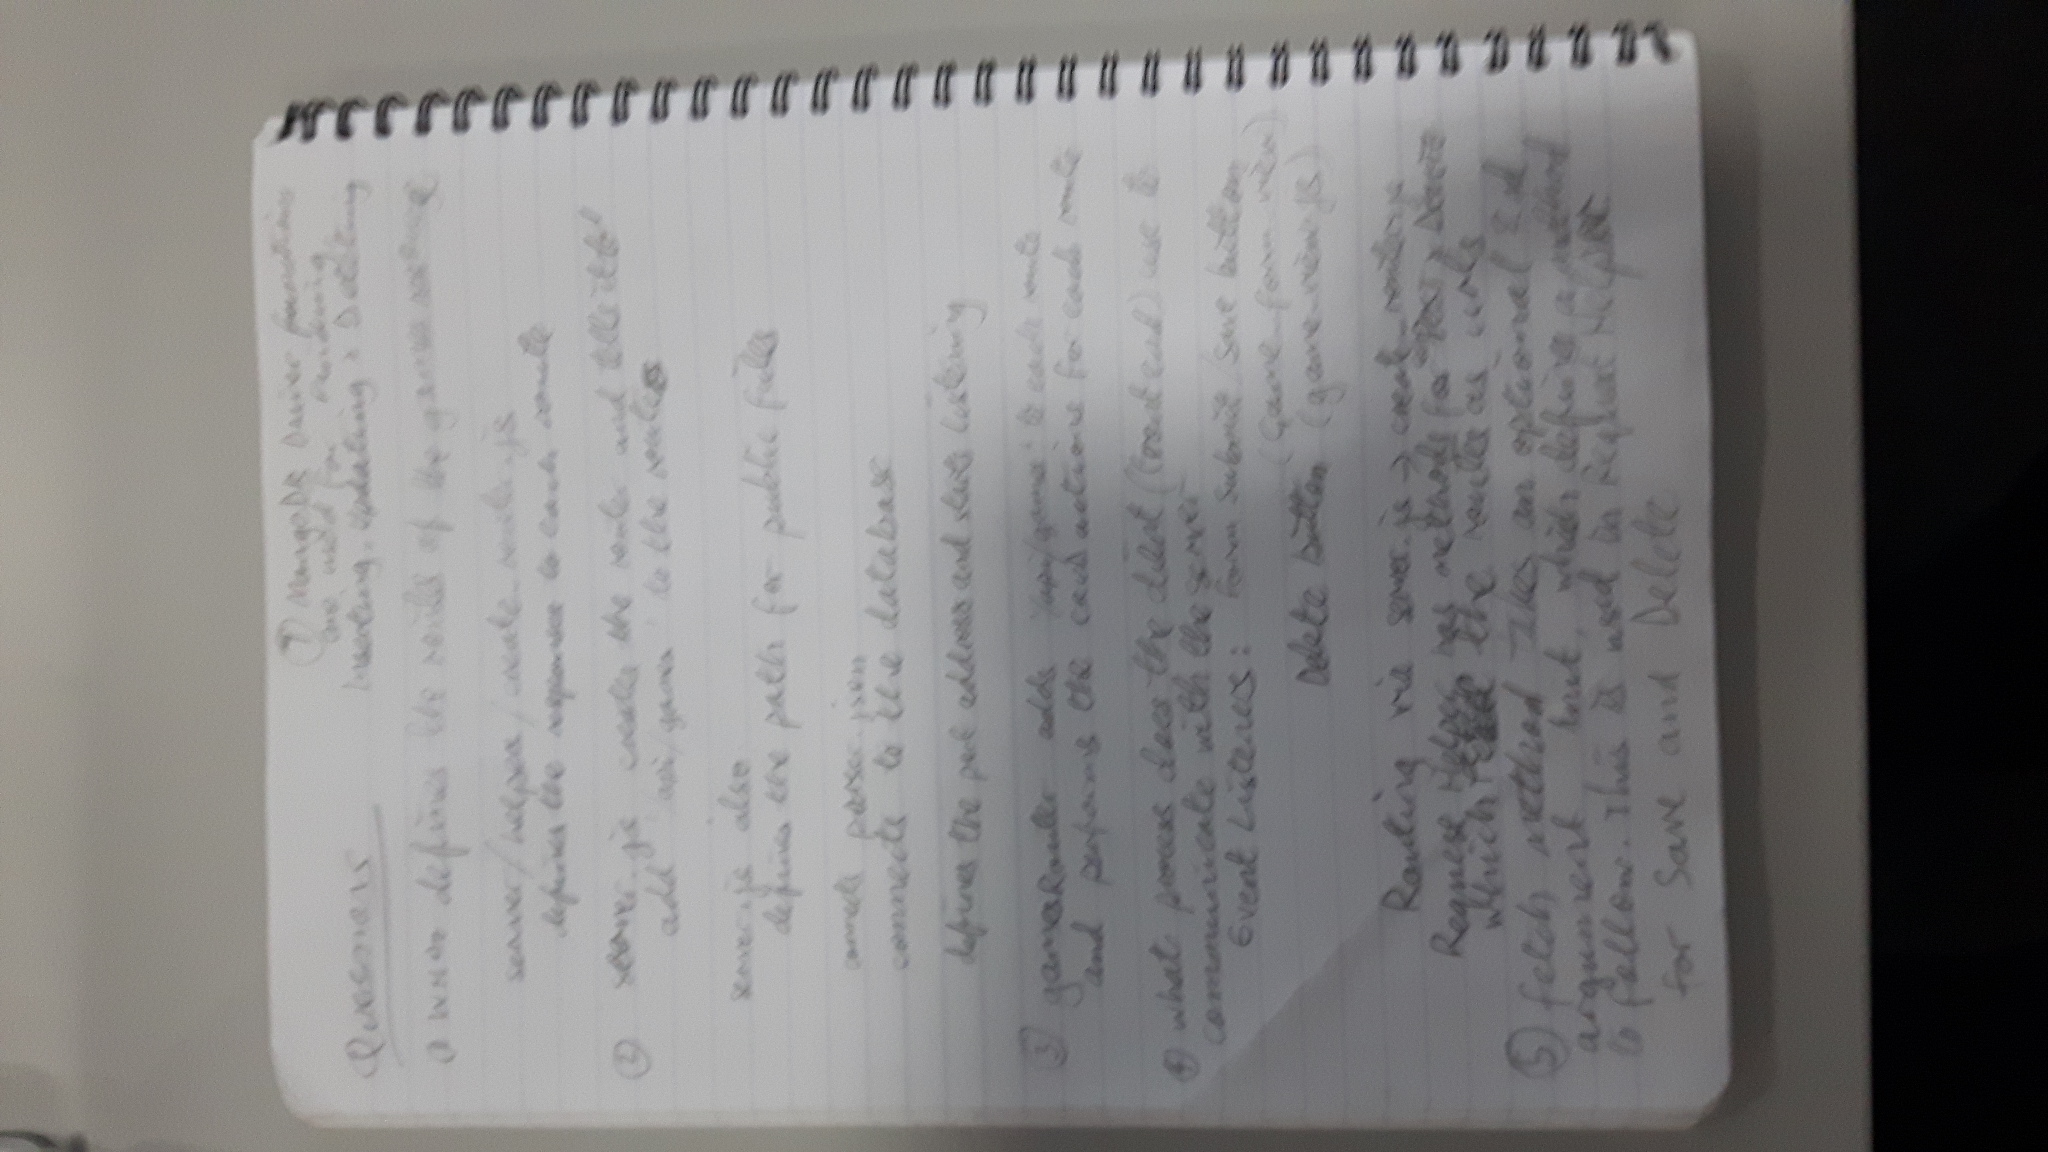 Questions
⑦ MongoDB Driver functions
are used for
Inserting, Updating, Deleting
① What defines the routes of the games resource
server/helpers/create_router.js
defines the responses to each route
② server.js creates the router and tells it to
add 'api/games' to the routes
server.js also
defines the path for public files
connects parser.json
connects to the database
defines the port address and starts listening
③ gamesRouter adds '/api/games' to each route
and performs the CRUD actions for each route
④ what process does the client (front end) use to
communicate with the server
Event Listeners: Form submit/save button
(game_form_view)
Delete button (game_view.js)
Routing via server.js → create_router.js
Request Helper has methods for Post, Delete
which the routes as urls
⑤ fetch method takes an optional 2nd
argument, init, which defines a method
to follow. This is used in Request Helper
for Save and Delete